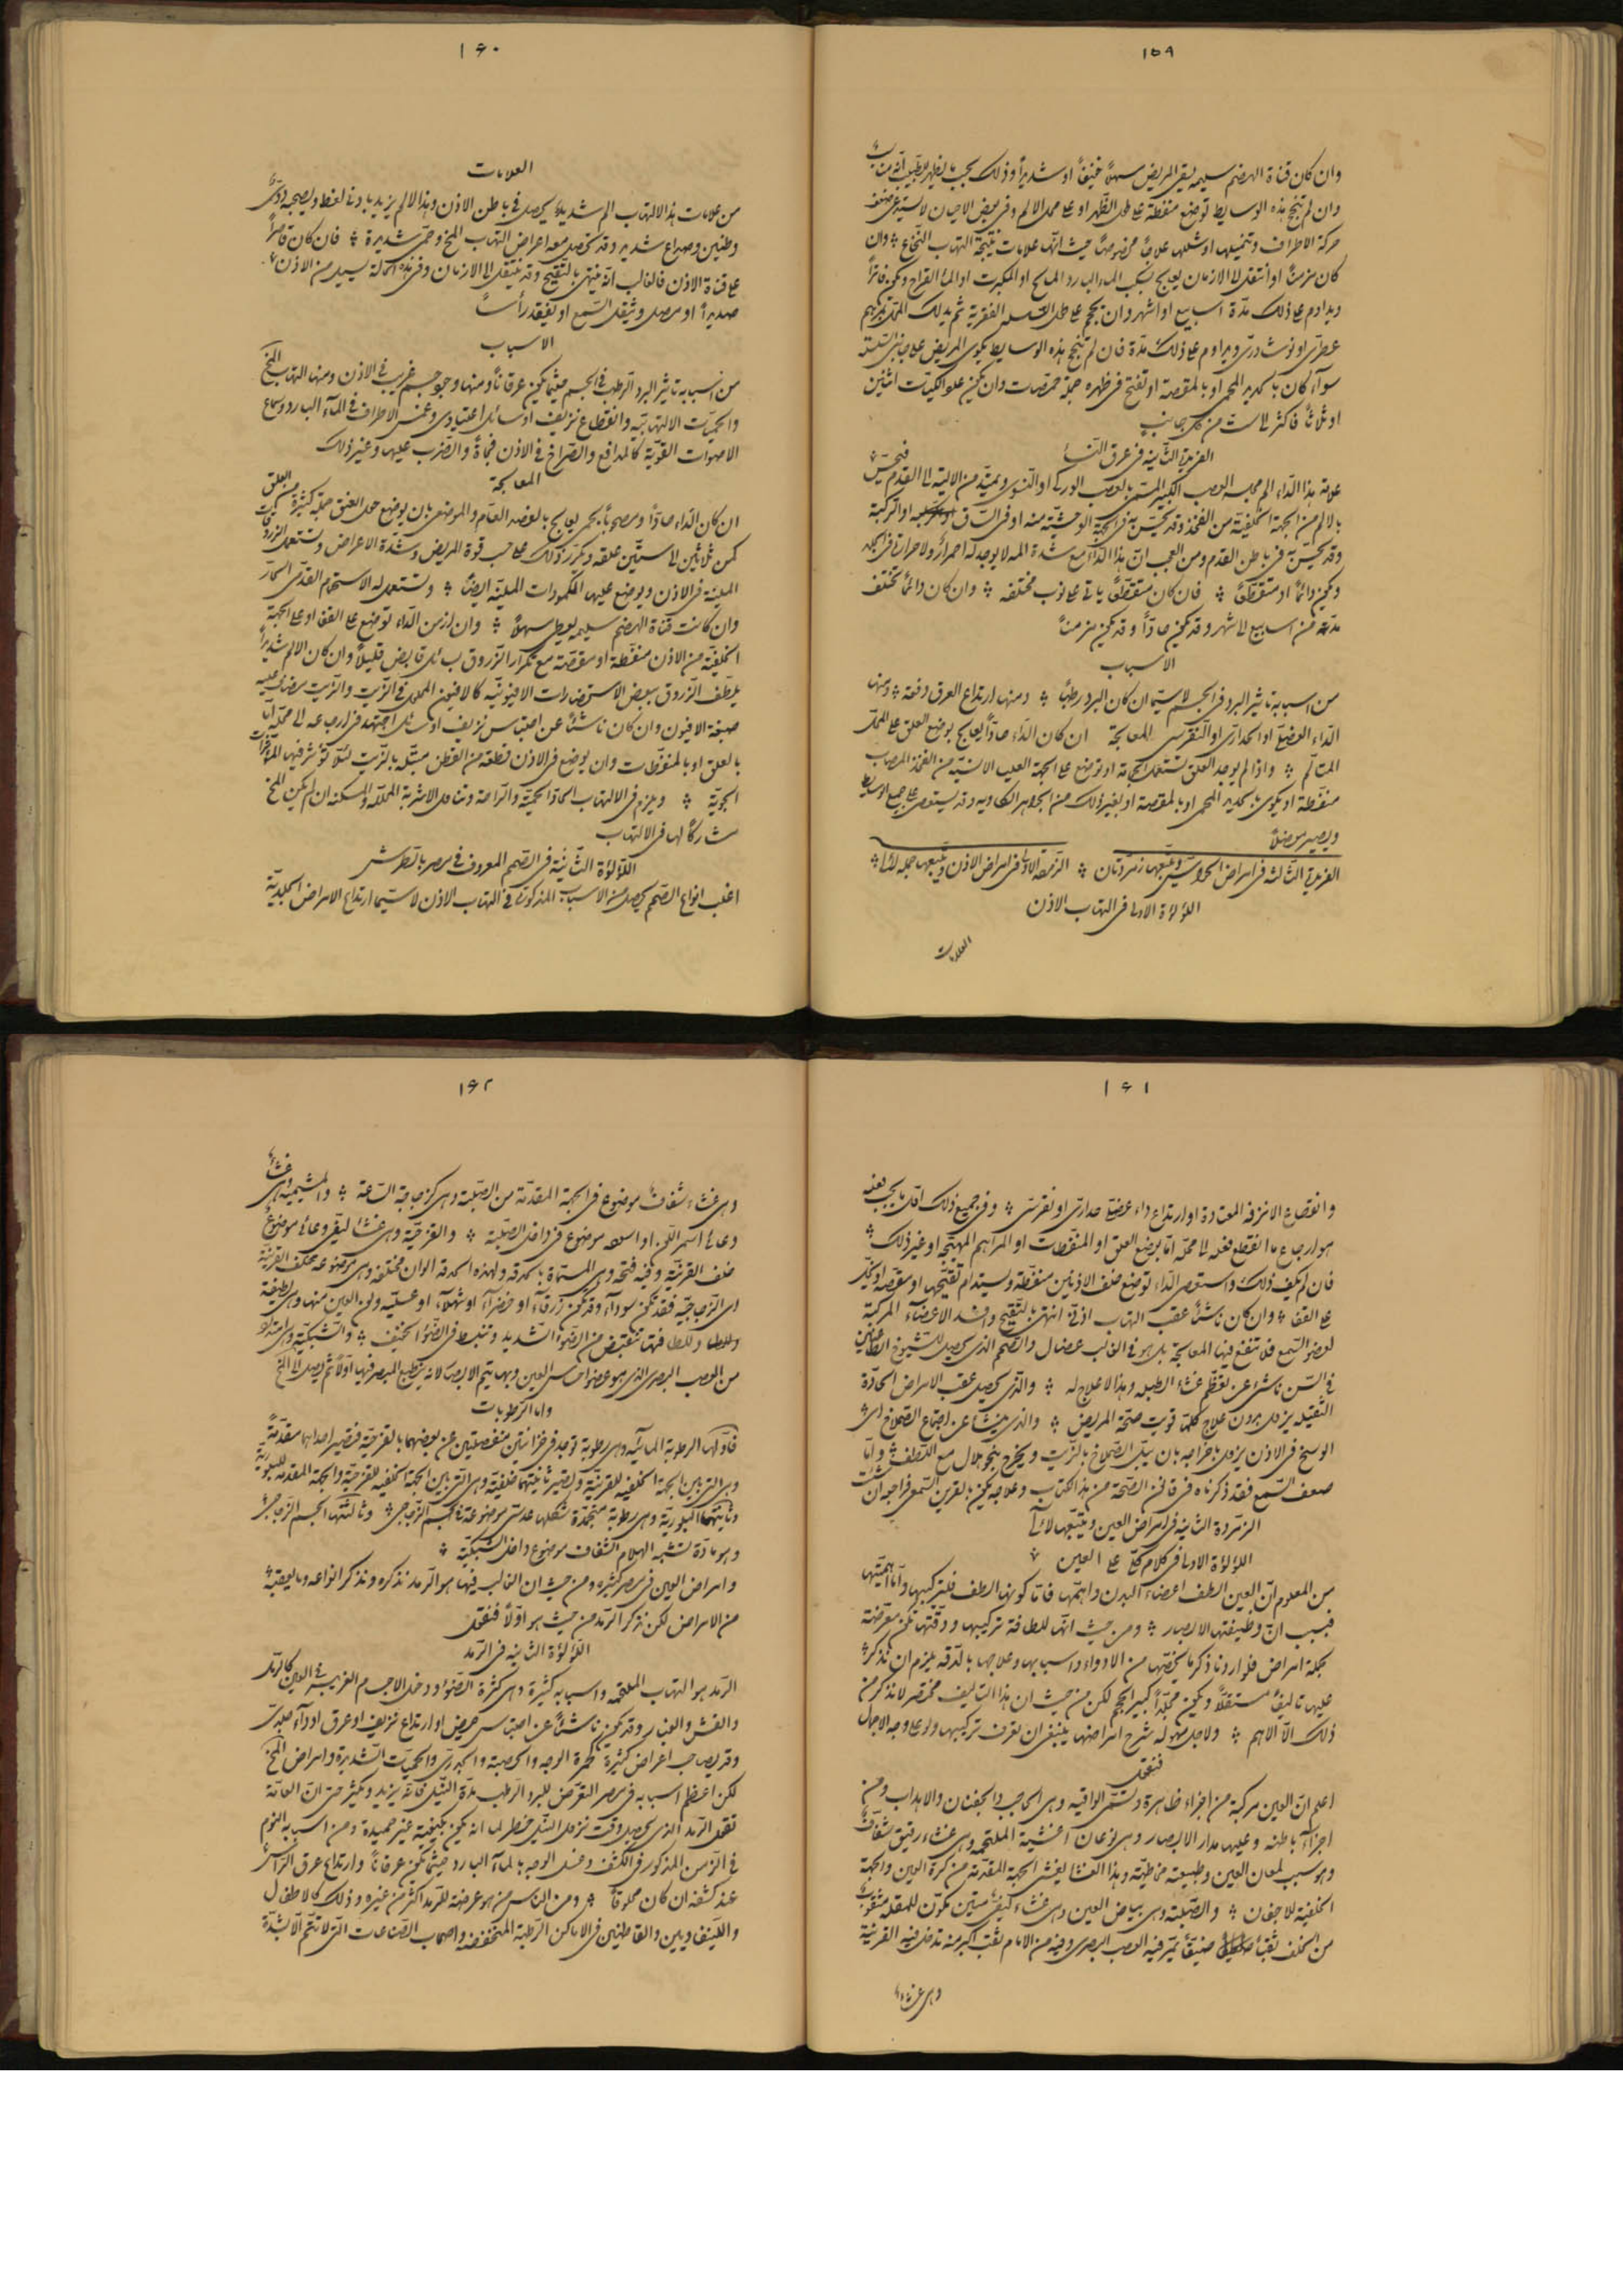 ١٥٩
وان كان قناة الهضم سليمه يسقى المريض مسهلاً خفيفاً او شديداً وذلك بحسب ما يظهر للطبيب انه مناسب
وان لم تنجح هذه الوسايط توضع منفطة على طول الظهر او على محل الالم وفى بعض الاحيان لا يستدعى ضعف
حركة الاطراف وتنميلها او شللها علاجاً مخصوصاً حيث انها علامات نتيجة التهاب النخاع ؞ وان
كان مزمناً او انتقل الى الازمان يعالج بسكب الماء البارد المالح او المكبرت او الماء القراح ويكون فاتراً
ويداوم على ذلك مدة اسابيع او اشهر وان يحجم على طول السلسلة الفقرية ثم يدلك المحل بمرهم
عطرى او نوشادرى ويداوم على ذلك مدة فان لم تنجح هذه الوسايط يكوى المريض على جانبى السلسلة
سوآء كان بالحديد المحمى او بالمقصه او تفتح فى ظهره جملة حمصات وان يكون عدد الكيات اثنين
او ثلاثاً فاكثر الى ست من كل جانب
الفريدة الثانيه فى عرق النسا
علامة هذا الداء الم مجلسه العصب الكبير المسمى بالعصب الوركى او النسوى ويمتد من الالية الى القدم فيحس
بالالم من الجهة الخلفية من الفخذ وقد يحس به فى الجهة الوحشية منه او فى الساق او الركبة
وقد يحس به فى باطن القدم ومن العجب ان هذا الداء مع شدة المه لا يوجد له احمرار ولا حرارة فى الجلد
ويكون دائماً او متقطعاً ؞ فان كان متقطعاً ياتى على نوب مختلفه ؞ وان كان دائماً تختلف
مدته من اسابيع الى اشهر وقد يكون حاداً وقد يكون مزمناً
الاسباب
من اسبابه تاثير البرد فى الجسم لا سيما ان كان البرد رطباً ؞ ومنها ارتداع العرق دفعة ؞ ومنها
الداء العضلى او الحدارى او النقرسى المعالجة ان كان الداء حاداً يعالج بوضع العلق على المحل
المتالم ؞ واذا لم يوجد العلق تستعمل الحجامة او توضع على الجهة العليا الانسية من الفخذ المصاب
منفطة او يكوى بالحديد المحمى او بالمقصة او بغير ذلك من الجواهر الكاويه وقد يستعصى على جميع الوسايط
ويصير عضالاً
الفريدة الثالثه فى امراض الحواس وتتبعها زمردتان ؞ الزمردة الاولى فى امراض الاذن ويتبعها جمله لالئ ؞
اللؤلؤة الاولى فى التهاب الاذن
العلامات
١٦٠
العلامات
من علامات هذا الالتهاب الم شديد يحصل فى باطن الاذن وهذا الالم يزيد بادنى لغط ويصحبه دوى
وطنين وصداع شديد وقد تحصل معه اعراض التهاب المخ وحمى شديدة ؞ فان كان قاصراً
على قناة الاذن فالغالب انه ينتهى بالتقيح وقد ينتقل الى الازمان وفى هذه الحالة يسيل من الاذن
صديد او مصل ويثقل السمع او يفقد رأساً
الاسباب
من اسبابه تاثير البرد الرطب فى الجسم حيثما يكون عرقاناً ومنها وجود جسم غريب فى الاذن ومنها التهاب المخ
والحميات الالتهابية وانقطاع نزيف او سائل اعتيادى وغمس الاطراف فى المآء البارد وسماع
الاصوات القوية كالمدافع والصراخ فى الاذن فجأة والضرب عليها وغير ذلك
المعالجة
ان كان الداء حاداً ومصحوباً بحمى يعالج بالفصد العام والموضعى بان يوضع حول العنق جملة كثيرة من العلق
كمن ثلاثين الى ستين علقه ويكرر ذلك على حسب قوة المريض وشدة الاعراض وتستعمل الزروقات
الملينة فى الاذن ويوضع عليها المكمودات الملينه ايضاً ؞ وتستعمل له الاستحمام القدمى الحار
وان كانت قناة الهضم سليمه يعطى مسهلاً ؞ وان ازمن الداء توضع على القفا او على الجهة
الخلفية من الاذن منفطة او مقصة مع تكرار الزروق بسائل قابض قليلاً وان كان الالم شديداً
يلطف الزروق ببعض الاستحضارات الافيونيه كالافيون المحلول فى الزيت والزيت مضافا عليه
صبغة الافيون وان كان ناشئاً عن احتباس نزيف او سائل اجتهد فى ارجاعه الى محله اما
بالعلق او بالمنفطات وان يوضع فى الاذن قطعة من القطن مبتله بالزيت لئلا تؤثر فيها المؤثرات
الجوية ؞ ويلزم فى الالتهاب الحاد الحمية والراحة وتناول الاشربة المحللة والمسكنه ان لم يكن المخ
مشاركاً لها فى الالتهاب
اللؤلؤة الثانية فى الصمم المعروف فى مصر بالطرش
اغلب انواع الصمم يحصل من الاسباب المذكورة فى التهاب الاذن لا سيما ارتداع الامراض الجلدية
١٦١
وانقطاع الانزفه المعتادة او ارتداع داء عضلى حدارى او نقرسى ؞ وفى جميع ذلك اول ما يجب فعله
هو ارجاع ما انقطع فعله الى محله اما بوضع العلق او المنفطات او المراهم المهيجه او غير ذلك ؞
فان لم يكف ذلك واستعصى الداء توضع خلف الاذنين منفطة ويستدام تقيحها او مقصه او تكوى
على القفا ؞ وان كان ناشئاً عقب التهاب اذنى انتهى بالتقيح وافسد الاعضاء المركبة
لعضو السمع فلا تنفع فيها المعالجة بل هو فى الغالب عضال والصمم الذى يحصل للشيوخ الطاعنين
فى السن ناشئ عن تعظم غشاء الطبله وهذا لا علاج له ؞ والذى يحصل عقب الامراض الحادة
الثقيله يزول بدون علاج كلما قويت صحة المريض ؞ والذى ينشأ عن اجتماع الصملاخ اى
الوسخ فى الاذن يزول باخراجه بان يبل الصملاخ بالزيت ويخرج بنحو خلال مع اللطف ؞ واما
ضعف السمع فقد ذكرناه فى قانون الصحة من هذا الكتاب وعلاجه يكون بالقرين السمعى فراجعه ان شئت
الزمردة الثانيه فى امراض العين ويتبعها لالئ
اللؤلؤة الاولى فى كلام كلى على العين ؞
من المعلوم ان العين الطف اعضاء البدن واهمها فاما كونها الطف فلتركيبها واما اهميتها
فبسبب ان وظيفتها الابصار ؞ ومن حيث انها للطافة تركيبها ودقتها تكون معرضة
لجملة امراض فلو اردنا ذكر ما يخصها من الادواء واسبابها وعلاجها بالدقه يلزم ان نذكر
عليها تاليفاً مستقلاً ويكون مجلداً كبير الحجم لكن من حيث ان هذا التاليف مختصر لا نذكر من
ذلك الا الاهم ؞ ولاجل سهولة شرح امراضها ينبغى ان نعرف تركيبها ولو على وجه الاجمال
فنقول
اعلم ان العين مركبة من اجزاء ظاهرة وتسمى الواقيه وهى الحاجب والجفنان والاهداب ومن
اجزاء باطنه وعليها مدار الابصار وهى نوعان اغشية الملتحمه وهى غشاء رقيق شفاف
وهو سبب لمعان العين وطبيعته مخاطية وهذا الغشا يغشى الجهة المقدمة من كرة العين والجهة
الخلفية للاجفان ؞ والصلبة وهى بياض العين وهى غشاء ليفى متين تكون للمقله مثقوب
من الخلف ثقبا ضيقاً يمر فيه العصب البصرى وفيه من الامام ثقب اكبر منه تدخل فيه القرنية
وهى غشاء
١٦٢
وهى غشاء شفاف موضوع فى الجهة المقدمة من الصلبة وهى كزجاجة الساعة ؞ والمشيمية وهى غشاء
وعائى اسمر اللون او اسود موضوع فى داخل الصلبة ؞ والقزحية وهى غشا ليفى وعائى موضوع
خلف القرنية وفيه فتحه وهى المسماة بالحدقه ولهذه الحدقه الوان مختلفه وهى موضوعه خلف القرنية
اى الزجاجية فقد تكون سوداء وقد تكون زرقاء او خضراء او شهلاء او عسلية ولون العين منها وهى لطيفة
فمها تنقبض من الضوء الشديد وتنبسط فى الضوء الخفيف ؞ والشبكية وهى امتداد
من العصب البصرى الذى هو عضو احساس العين وبها يتم الابصار لانه ينطبع المبصر فيها اولاً ثم يصل الى المخ
واما الرطوبات
فاولها الرطوبة المائيه وهى رطوبة توجد فى خزانتين منفصلتين عن بعضهما بالقزحية فتصير احداهما مقدمة
وهى التى بين الجهة الخلفيه للقرنية وتصير ثانيتهما خلفية وهى التى بين الجهة الخلفيه للقزحية والجهة المقدمه للبلورية
وثانيتها البلورية وهى رطوبة متجمدة شكلها عدسى موضوعة فى الجسم الزجاجى ؞ وثالثتها الجسم الزجاجى
وهو مادة تشبه الهلام الشفاف موضوع داخل الشبكية ؞
وامراض العين فى مصر كثيرة ومن حيث ان الغالب فيها هو الرمد نذكره ونذكر انواعه وما يعقبه
من الامراض لكن نذكر الرمد من حيث هو اولاً فنقول
اللؤلؤة الثانيه فى الرمد
الرمد هو التهاب الملتحمه واسبابه كثيرة وهى كثرة الضوء ودخول الاجسام الغريبه فى العين كالرمل
والقش والغبار وقد يكون ناشئاً عن احتباس حيض او ارتداع نزيف او عرق او داء جلدى
وقد يصاحب اعراض كثيرة كحمرة الوجه والحصبة والجدرى والحميات الشديدة وامراض المخ
لكن اعظم اسبابه فى مصر التعرض للبرد الرطب مدة النيل فانه يزيد ويكثر حتى ان العامة
تقول الرمد الذى يحصل وقت نزول النيل خطر لما انه يكون بكيفية غير حميدة ومن اسبابه النوم
فى الزمن المذكور فى الكشف وغسل الوجه بالمآء البارد حيثما يكون عرقاناً وارتداع عرق الراس
عند كشفه ان كان محلوقاً ؞ ومن الناس من هو عرضة للرمد اكثر من غيره وذلك كالاطفال
واللينفاويين والقاطنين فى الاماكن الرطبة المنخفضه واصحاب الصناعات التى لا تتم الا بشدة